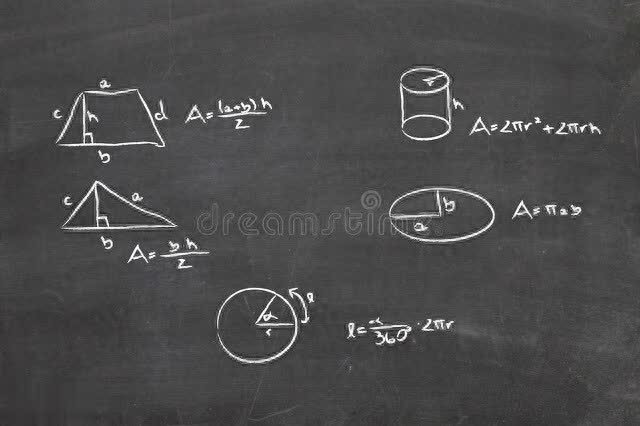 a
c h d
b
A = (a+b) h / 2
r
h
A = 2πr² + 2πrh
c a
b
A = b h / 2
b
a
A = π a b
dreamstime
α
r
l
l = α / 360° · 2πr